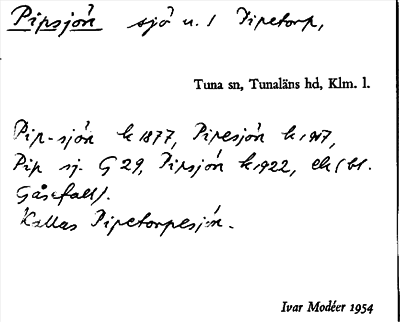 Pipsjön sjö n. 1 Pipetorp,
Tuna sn, Tunaläns hd, Klm. l.
Pip-sjön k 1877, Pipesjön k 1917,
Pip sj. G 29, Pipsjön k 1922, ek (bl.
Gåsefall).
Kallas Pipetorpesjön.
Ivar Modéer 1954